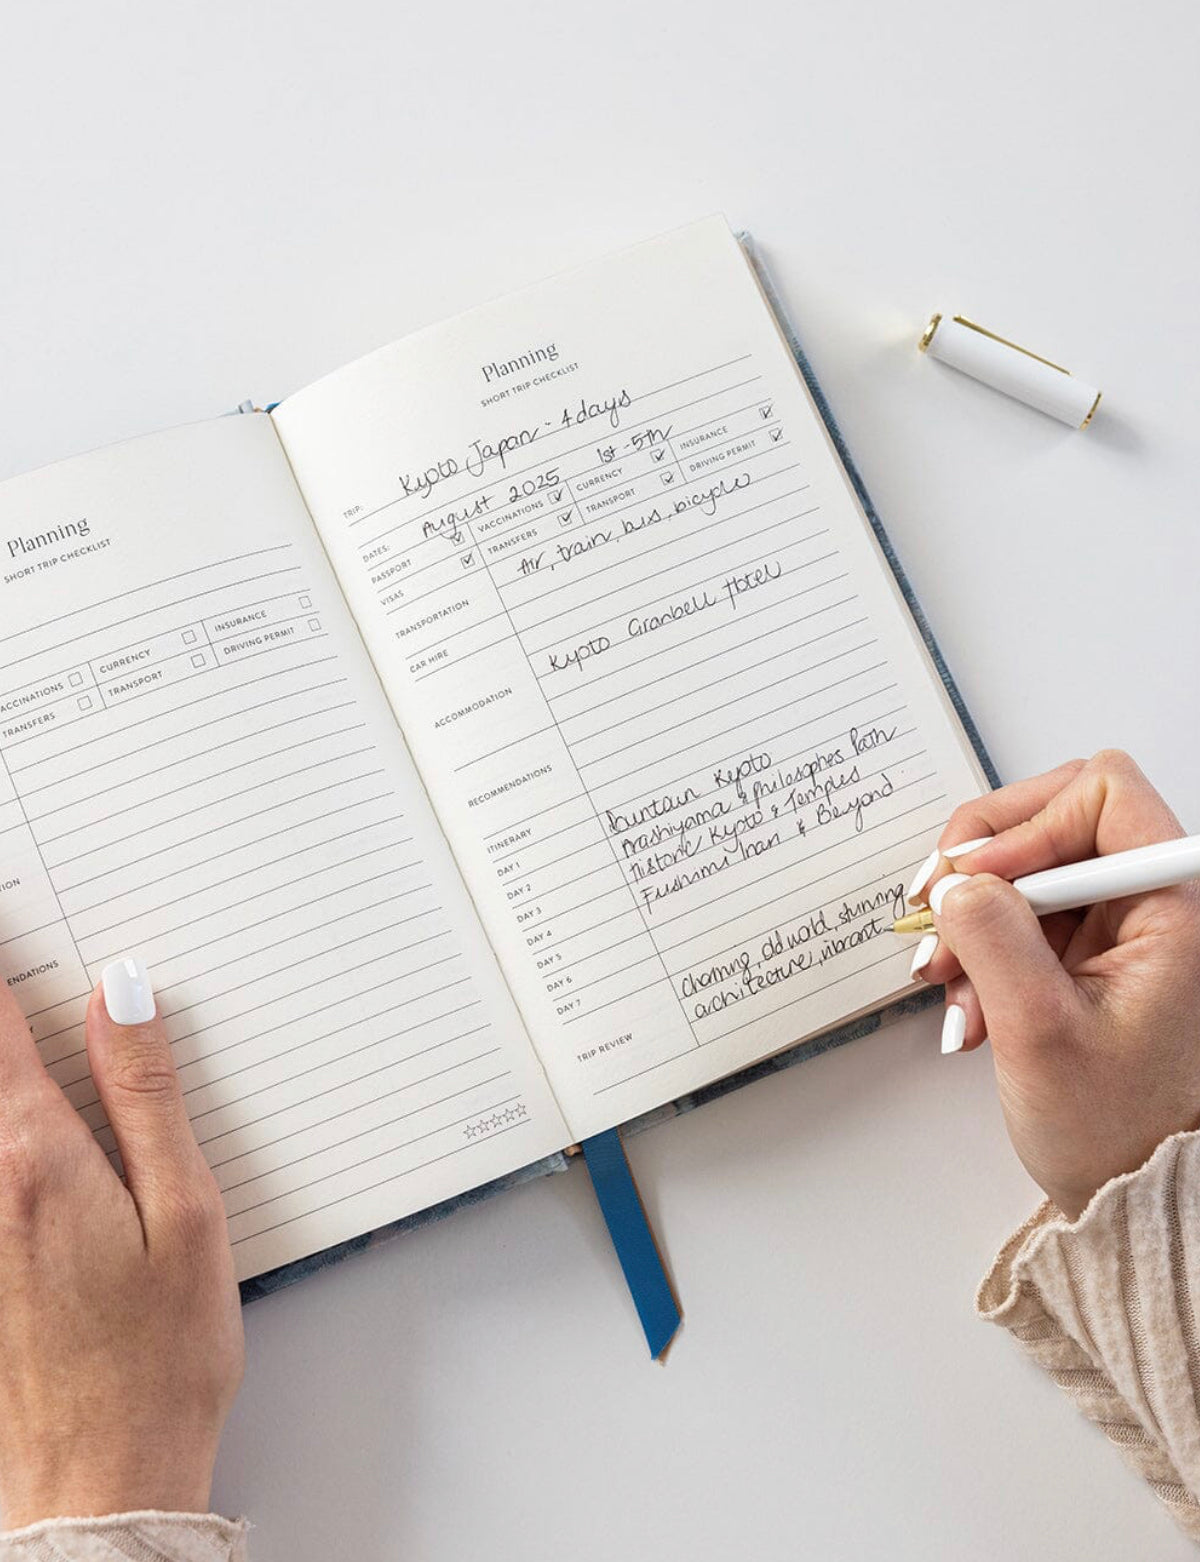 Planning
SHORT TRIP CHECKLIST
CURRENCY
INSURANCE
TRANSFERS
TRANSPORT
DRIVING PERMIT
Planning
SHORT TRIP CHECKLIST
TRIP: Kyoto Japan - 4 days
DATES: August 2025 1st - 5th
PASSPORT VACCINATIONS CURRENCY INSURANCE
VISAS TRANSFERS TRANSPORT DRIVING PERMIT
TRANSPORTATION Air, train, bus, bicycle
CAR HIRE
ACCOMMODATION Kyoto Granbell Hotel
RECOMMENDATIONS
ITINERARY
DAY 1 Kyoto
DAY 2 Arashiyama & Philosophes Path
DAY 3 Historic Kyoto & Temples
DAY 4 Fushimi Inari & Beyond
DAY 5
DAY 6
DAY 7
TRIP REVIEW charming, old world, stunning
architecture, vibrant